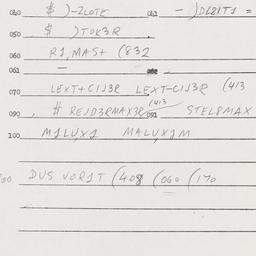 040 $ )-ZLOTE 041 - )DLBIT1 =
050 $ )TOK3R
060 R1,MAS+ (832
061 -
070 LEXT+C1J3R LEXT-C1J3R (413
090 , # REJD3RMAX3R (413 091 STEL8MAX
100 M1LUX1 MALUX1M
DUS VOR1T (408 (060 (170